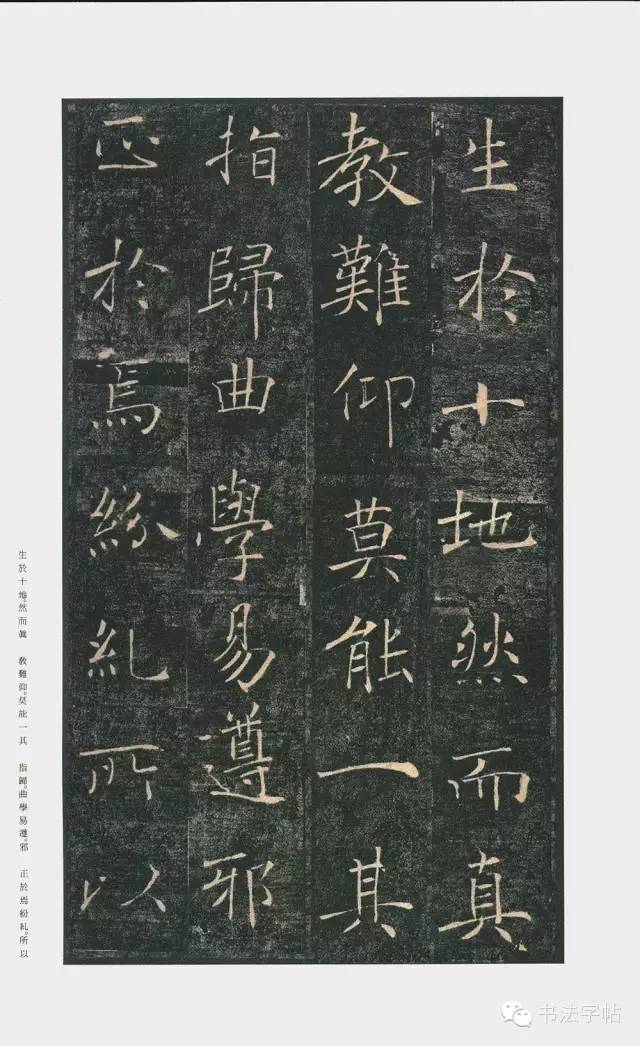 生於十地然而真
教難仰莫能一其
指歸曲學易遵邪
正於焉紛糺所以
生於十地。然而眞 教難仰。莫能一其 指歸。曲學易遵。邪 正於焉紛糺。所以
书法字帖